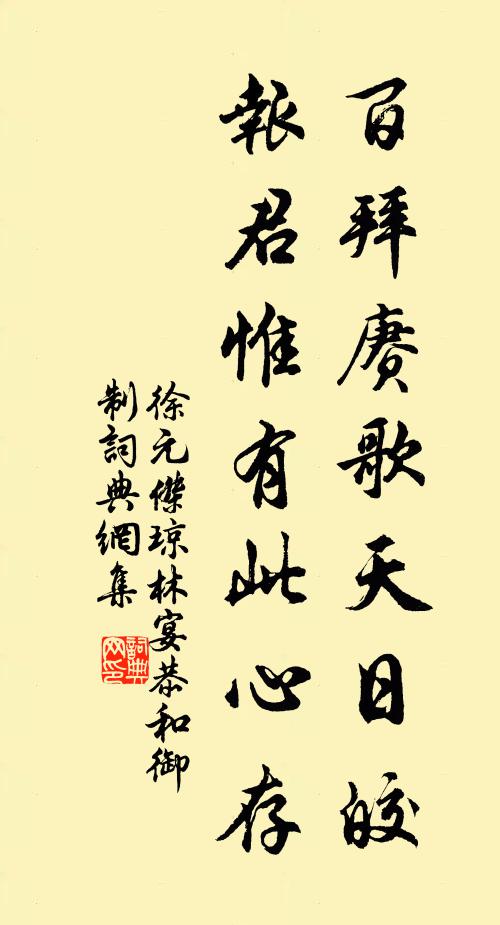 百拜赓歌天日皎
報君惟有此心存
徐元傑琼林宴恭和御
制詞典網集
詞典網印